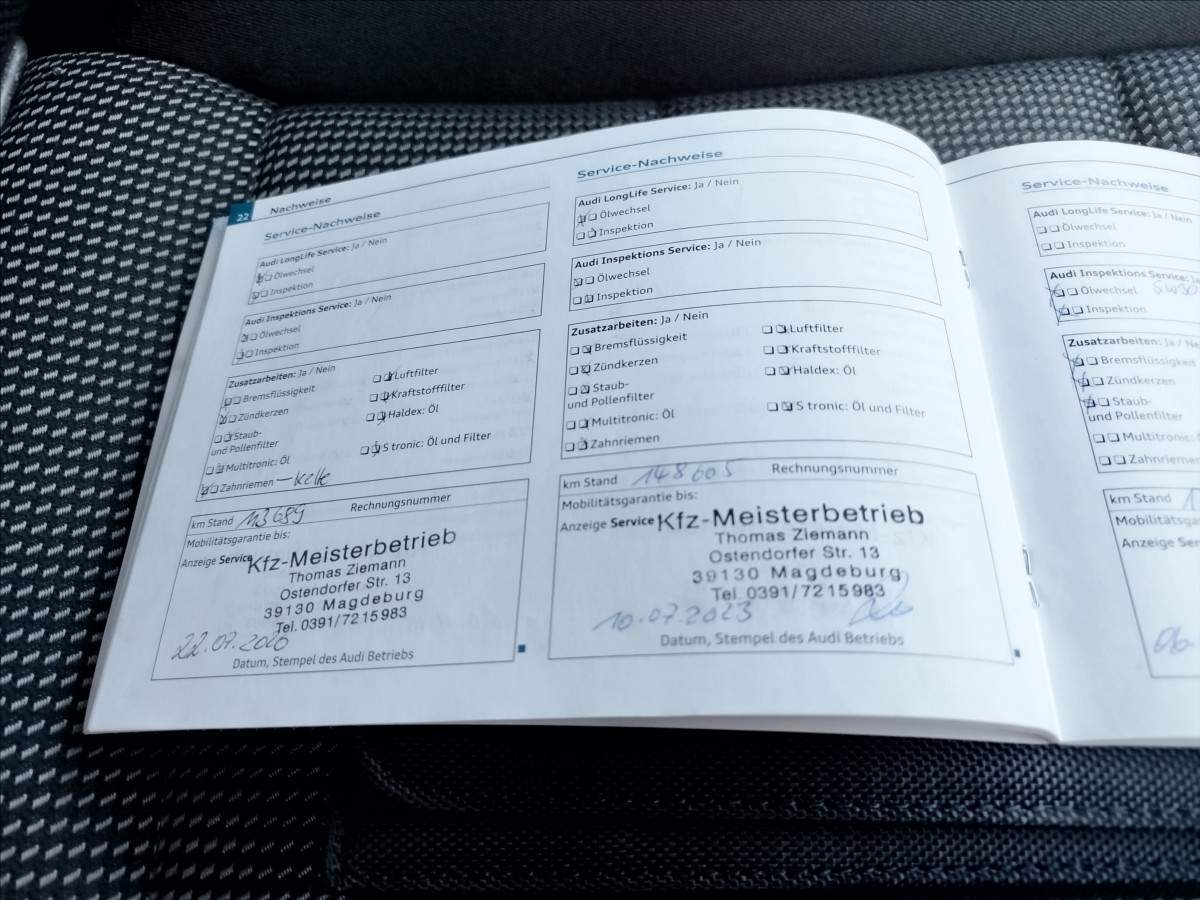 22 Nachweise
Service-Nachweise
Audi LongLife Service: Ja / Nein
Ölwechsel
Inspektion
Audi Inspektions Service: Ja / Nein
Ölwechsel
Inspektion
Zusatzarbeiten: Ja / Nein
Bremsflüssigkeit
Zündkerzen
Staub-
und Pollenfilter
Multitronic: Öl
Zahnriemen – Kette
Luftfilter
Kraftstofffilter
Haldex: Öl
S tronic: Öl und Filter
km Stand 113689 Rechnungsnummer
Mobilitätsgarantie bis:
Anzeige Service
Kfz-Meisterbetrieb
Thomas Ziemann
Ostendorfer Str. 13
39130 Magdeburg
Tel. 0391/7215983
22.07.2020
Datum, Stempel des Audi Betriebs
Service-Nachweise
Audi LongLife Service: Ja / Nein
Ölwechsel
Inspektion
Audi Inspektions Service: Ja / Nein
Ölwechsel
Inspektion
Zusatzarbeiten: Ja / Nein
Bremsflüssigkeit
Zündkerzen
Staub-
und Pollenfilter
Multitronic: Öl
Zahnriemen
Luftfilter
Kraftstofffilter
Haldex: Öl
S tronic: Öl und Filter
km Stand 148605 Rechnungsnummer
Mobilitätsgarantie bis:
Anzeige Service
Kfz-Meisterbetrieb
Thomas Ziemann
Ostendorfer Str. 13
39130 Magdeburg
Tel 0391/7215983
10.07.2023
Datum, Stempel des Audi Betriebs
Service-Nachweise
Audi LongLife Service: Ja / Nein
Ölwechsel
Inspektion
Audi Inspektions Service: Ja
Ölwechsel 5W30
Inspektion
Zusatzarbeiten: Ja / Ne
Bremsflüssigkeit
Zündkerzen
Staub-
und Pollenfilter
Multitronic:
Zahnriemen
km Stand 1
Mobilitätsga
Anzeige Servic
06